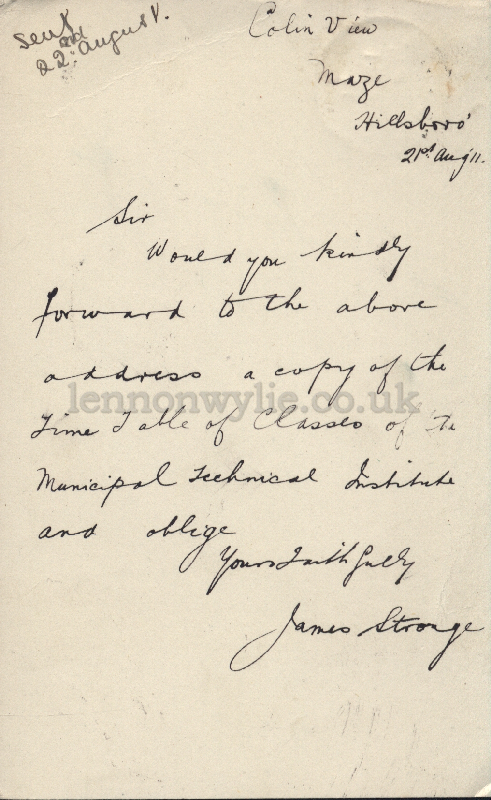 sent
22nd August.
Colin View
Maze
Hillsboro'
21st Aug 11.
Sir
Would you kindly
forward to the above
address a copy of the
Time Table of Classes of the
lennonwylie.co.uk
Municipal Technical Institute
and oblige
Yours Faithfully
James Stronge